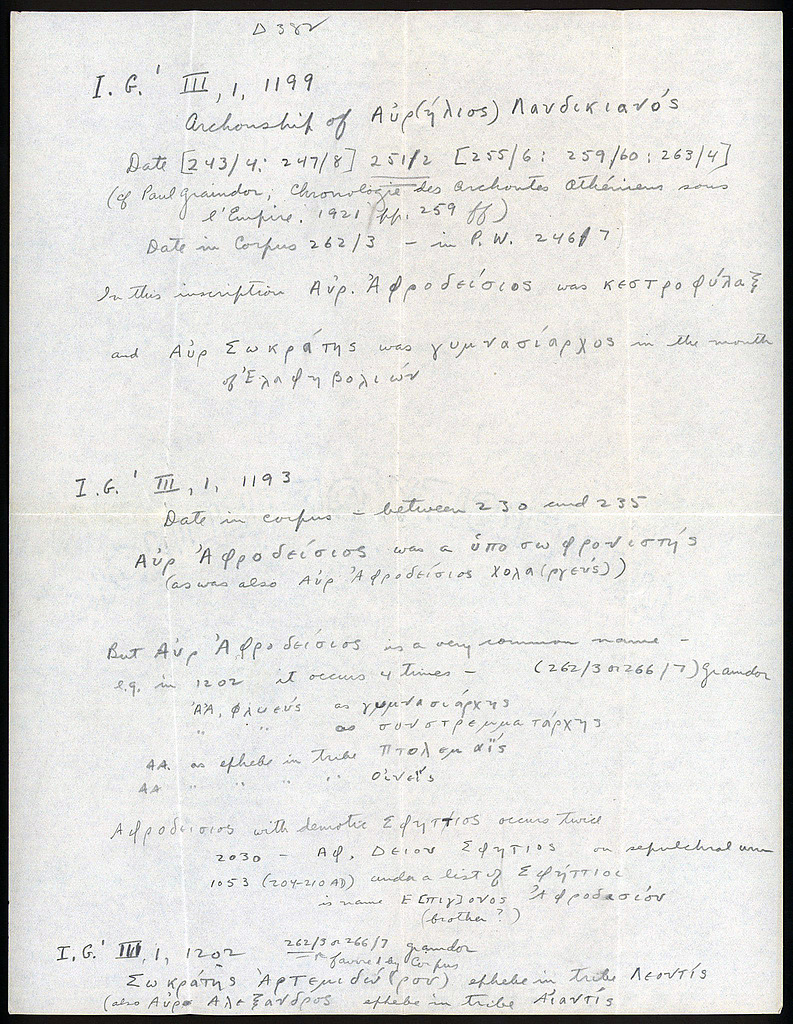 Δ 382
I. G.' III, 1, 1199
Archonship of Αὐρ(ήλιος) Λαυδικιανός
Date [243/4: 247/8] 251/2 [255/6: 259/60: 263/4]
(cf Paul Graindor, Chronologie des archontes Athéniens sous
l'Empire. 1921 pp. 259 ff)
Date in Corpus 262/3 – in P. W. 246/7
In this inscription Αὐρ. Ἀφροδείσιος was κεστροφύλαξ
and Αὐρ Σωκράτης was γυμνασίαρχος in the month
of Ἐλαφηβολιών
I. G.' III, 1, 1193
Date in corpus – between 230 and 235
Αὐρ Ἀφροδείσιος was a ὑποσωφρονιστής
(as was also Αὐρ Ἀφροδείσιος Χολα(ργεύς))
But Αὐρ Ἀφροδείσιος is a very common name –
e.g. in 1202 it occurs 4 times – (262/3 or 266/7) Graindor
ἈΑ, Φλυεύς as γυμνασιάρχης
" " " as συνστρεμματάρχης
AA. as ephebe in tribe Πτολεμαΐς
AA " " " " Οἰνεΐς
Αφροδεισιος with demotic Σφηττιος occurs twice
2030 – Αφ. Δειου Σφηττιος on sepulchral urn
1053 (204-210 AD) under a list of Σφήττιοι
is name Ε[πιγ]ονος Ἀφροδισίου
(brother?)
I. G.' III, 1, 1202 262/3 or 266/7 Graindor
favored by Corpus
Σωκράτης Ἀρτεμιδώ(ρου) ephebe in tribe Λεοντίς
(also Αὐρ Αλεξανδρος ephebe in tribe Αἰαντίς